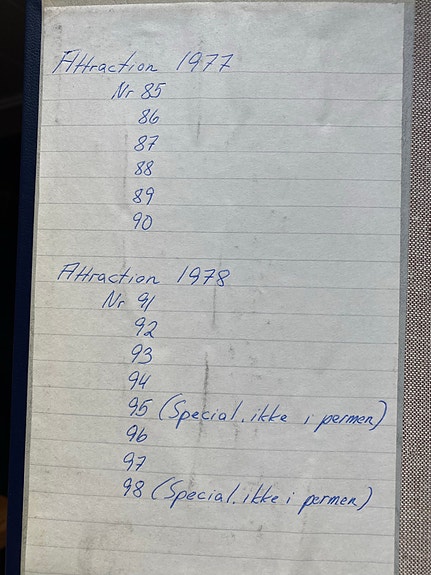 Attraction 1977
Nr 85
86
87
88
89
90
Attraction 1978
Nr 91
92
93
94
95 (Special. ikke i permen)
96
97
98 (Special. ikke i permen)